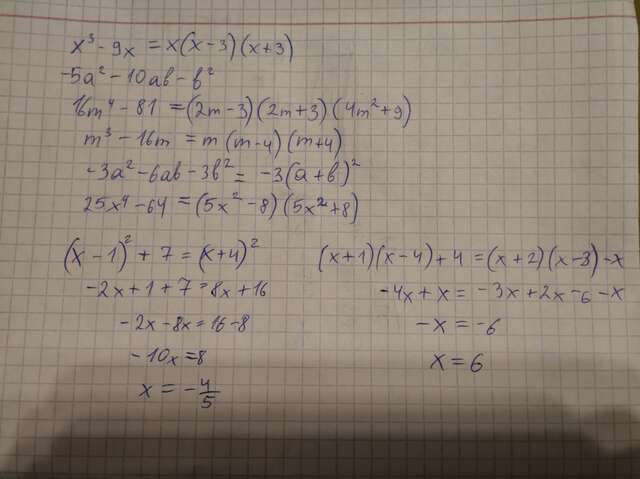 x³ - 9x = x(x - 3)(x + 3)
-5a² - 10ab - b²
16m⁴ - 81 = (2m - 3)(2m + 3)(4m² + 9)
m³ - 16m = m(m - 4)(m + 4)
-3a² - 6ab - 3b² = -3(a + b)²
25x⁴ - 64 = (5x² - 8)(5x² + 8)
(x - 1)² + 7 = (x + 4)²
-2x + 1 + 7 = 8x + 16
-2x - 8x = 16 - 8
-10x = 8
x = -4/5
(x + 1)(x - 4) + 4 = (x + 2)(x - 3) - x
-4x + x = -3x + 2x - 6 - x
-x = -6
x = 6